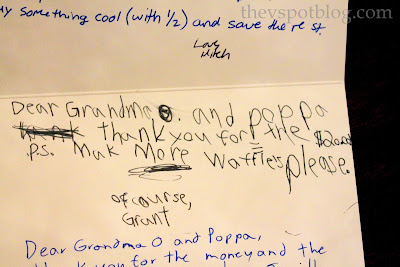 theyspotblog.com
y something cool (with 1/2) and save the rest.
Love
Mitch
Dear Grandma O. and poppa
thank you for the $20.00
P.S. Mak More Waffles please.
of course,
Grant
Dear Grandma O and Poppa,
thank you for the money and the